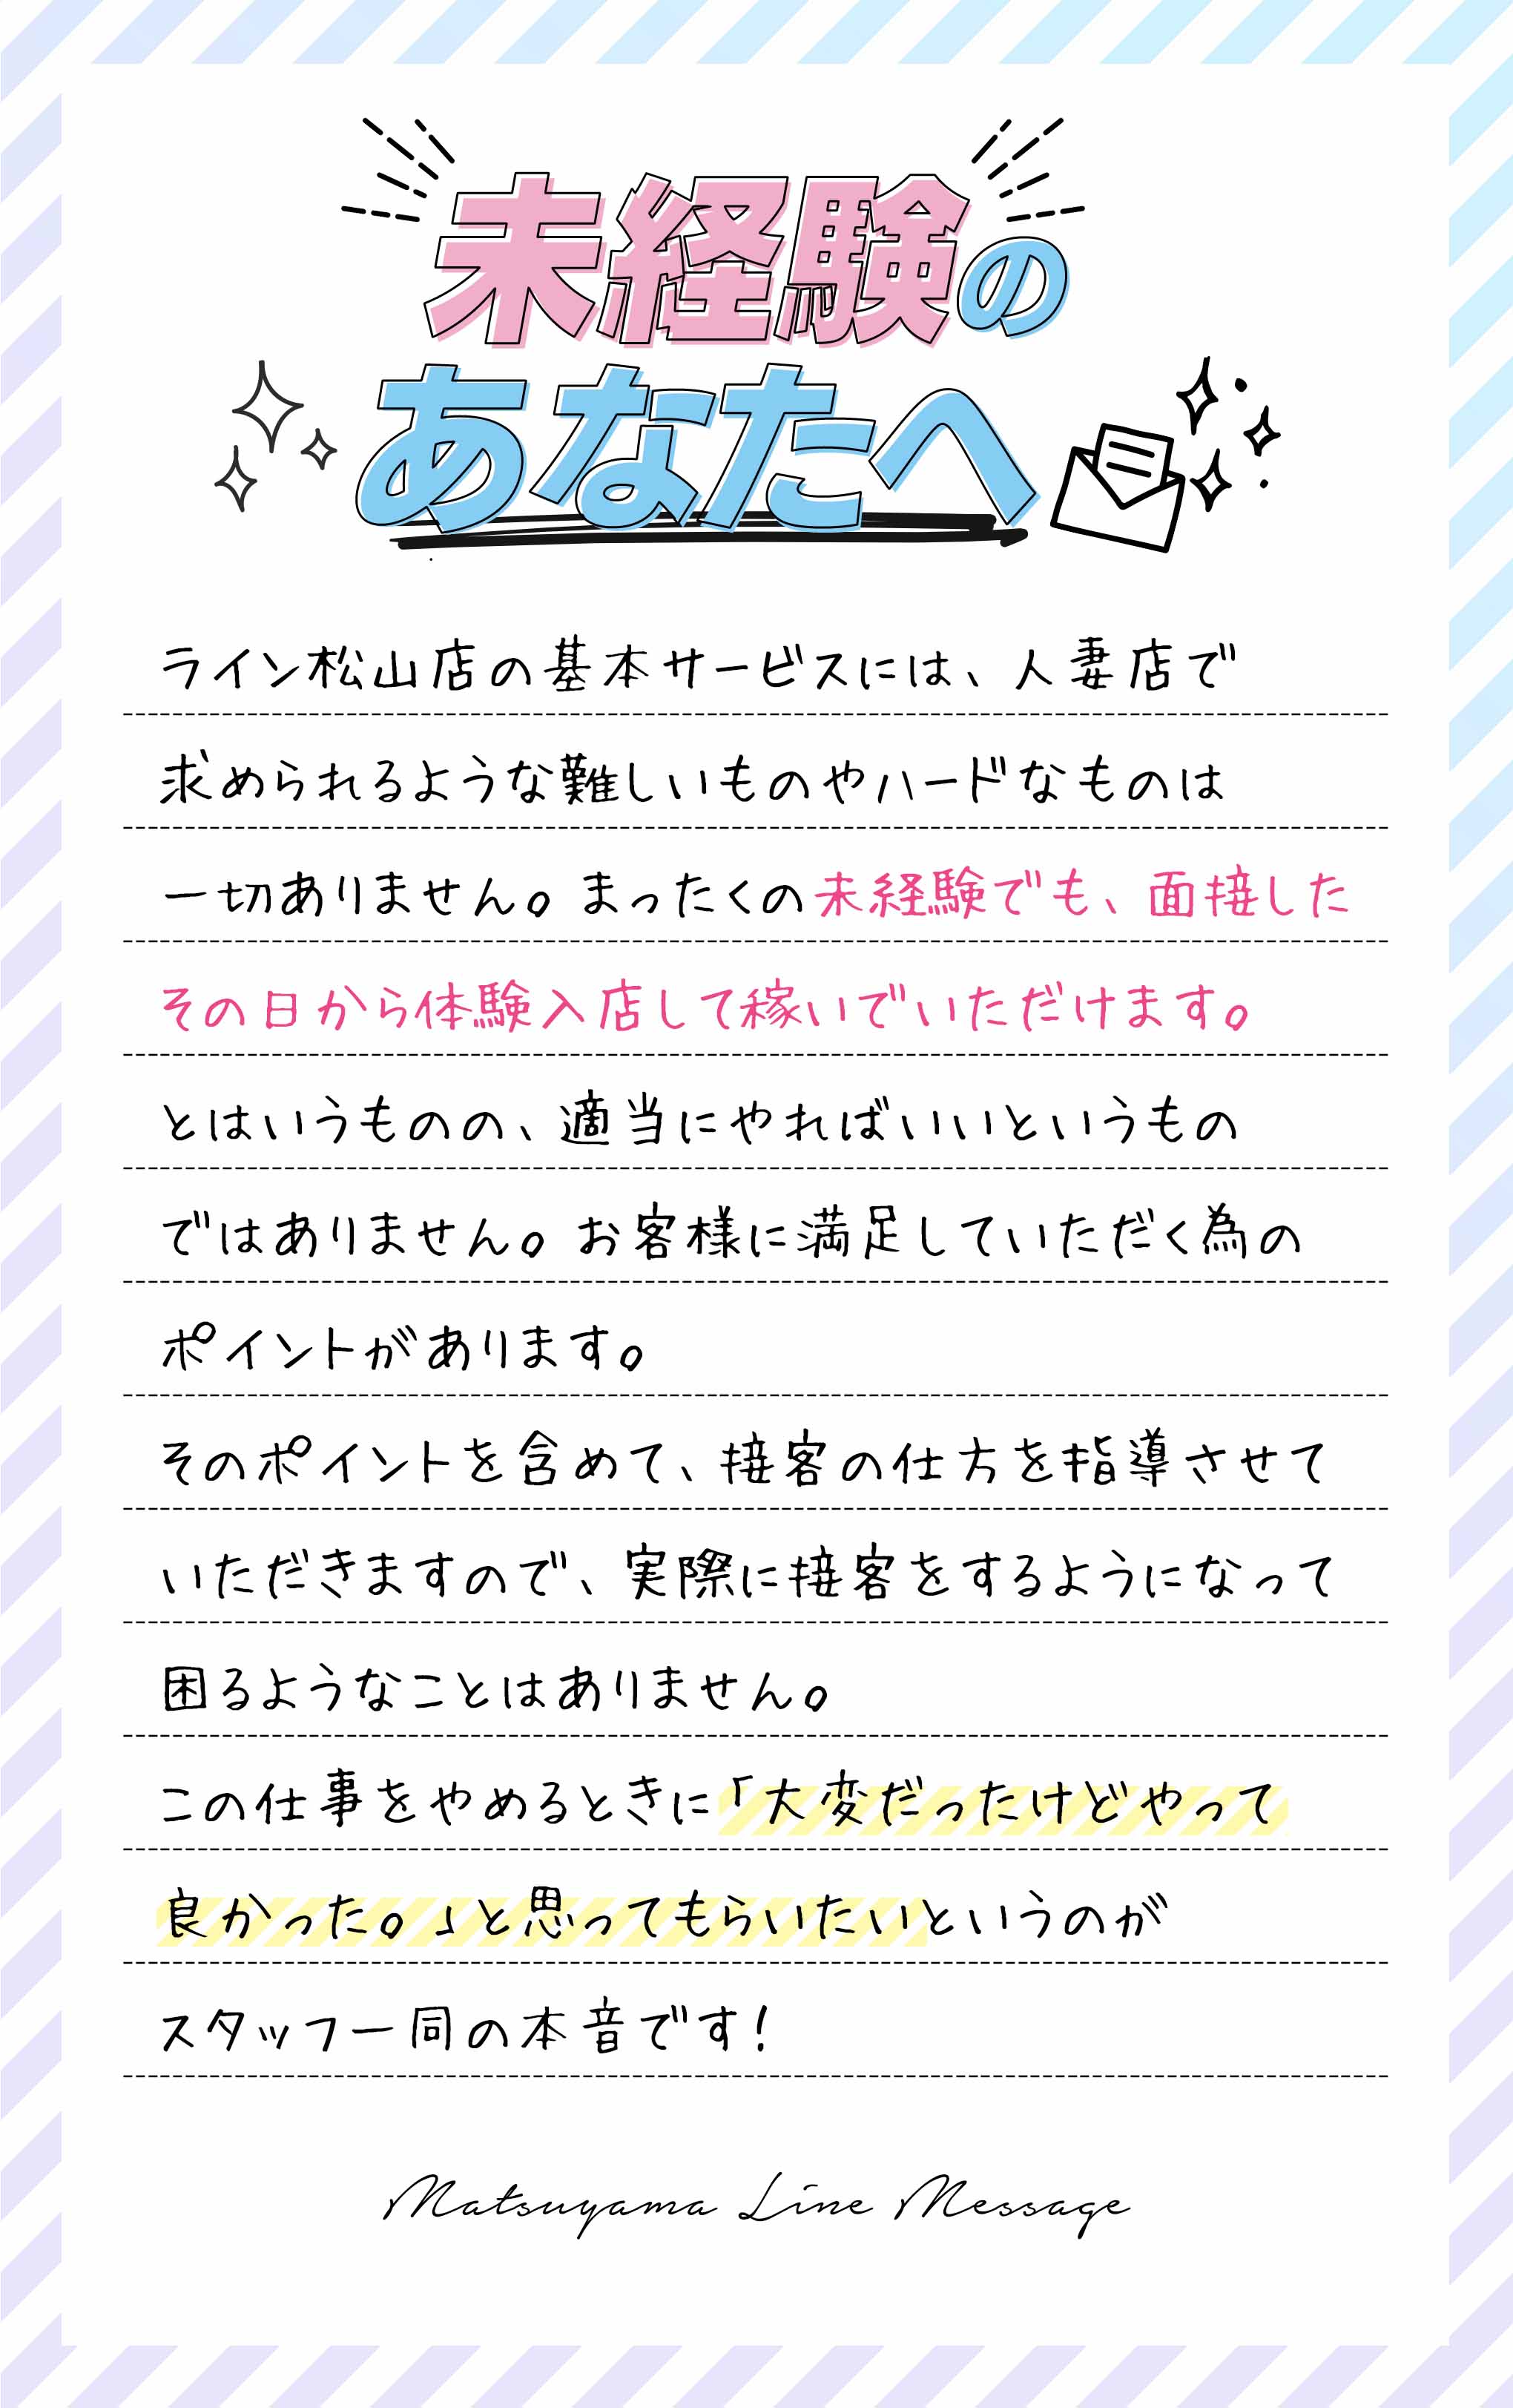 未経験の
あなたへ
ライン松山店の基本サービスには、人妻店で
求められるような難しいものやハードなものは
一切ありません。まったくの未経験でも、面接した
その日から体験入店して稼いでいただけます。
とはいうものの、適当にやればいいというもの
ではありません。お客様に満足していただく為の
ポイントがあります。
そのポイントを含めて、接客の仕方を指導させて
いただきますので、実際に接客をするようになって
困るようなことはありません。
この仕事をやめるときに「大変だったけどやって
良かった。」と思ってもらいたいというのが
スタッフ一同の本音です!
Matsuyama Line Message